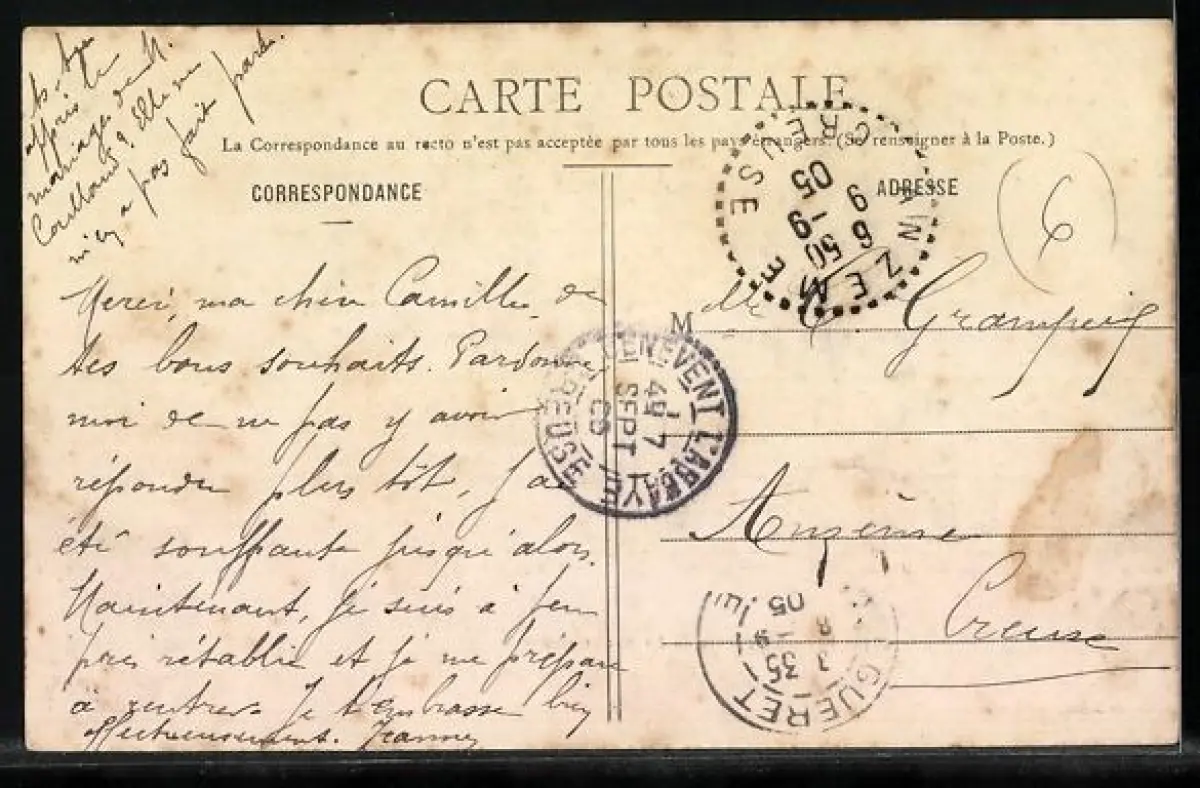 As-tu
appris le
mariage de M.
Coullaud? Elle ne
m'en a pas fait part.
CARTE POSTALE
La Correspondance au recto n'est pas acceptée par tous les pays étrangers. (Se renseigner à la Poste.)
CORRESPONDANCE
ADRESSE
Merci, ma chère Camille, de
tes bons souhaits. Pardonne
moi de ne pas y avoir
répondu plus tôt, j'ai
été souffrante jusqu'alors.
Maintenant, je suis à peu
près rétablie et je me prépare
à rentrer. Je t'embrasse bien
affectueusement. Jeanne
6
AINZEME
CREUSE
6 50
9 -9
05
Melle C.
Anzème
Creuse
BENEVENT L'ABBAYE
CREUSE
7
SEPT
GUERET
3 35
05